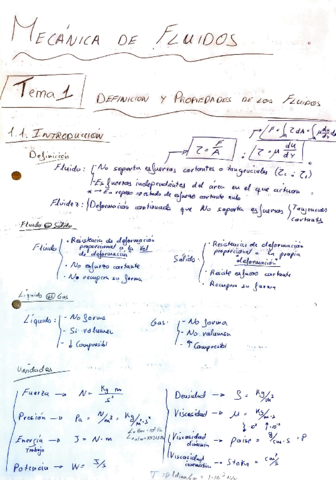 MECÁNICA DE FLUIDOS
Tema 1 DEFINICION Y PROPIEDADES DE LOS FLUIDOS
1.1. INTRODUCCION
τ = F/A
τ = μ du/dy
Definición
Fluido: No soporta esfuerzos cortantes o tangenciales
Esfuerzos independientes del area en el que actuan
reposo esfuerzo cortante nulo
Deformación continuada que No soporta esfuerzos Tangenciales cortantes
Fluido Solido
Fluido - Resistencia de deformación proporcional a la vel. de deformación
- No esfuerzo cortante
- No recupera su forma
Solido - Resistencia de deformación proporcional a la propia deformación
- Resiste esfuerzo cortante
- Recupera su forma
Líquido Gas
Líquido: - No forma
- Si volumen
- ↓ Compresible
Gas: - No forma
- No volumen
- ↑ Compresible
Unidades
Fuerza → N = Kg m/s²
Presión → Pa = N/m² = Kg/m·s²
Energía Trabajo → J = N·m
Potencia → W = J/s
Densidad → ρ = Kg/m³
Viscosidad → μ = Kg/m·s
Viscosidad dinamica → poise = g/cm·s · P
Viscosidad cinematica → Stoke = cm²/s